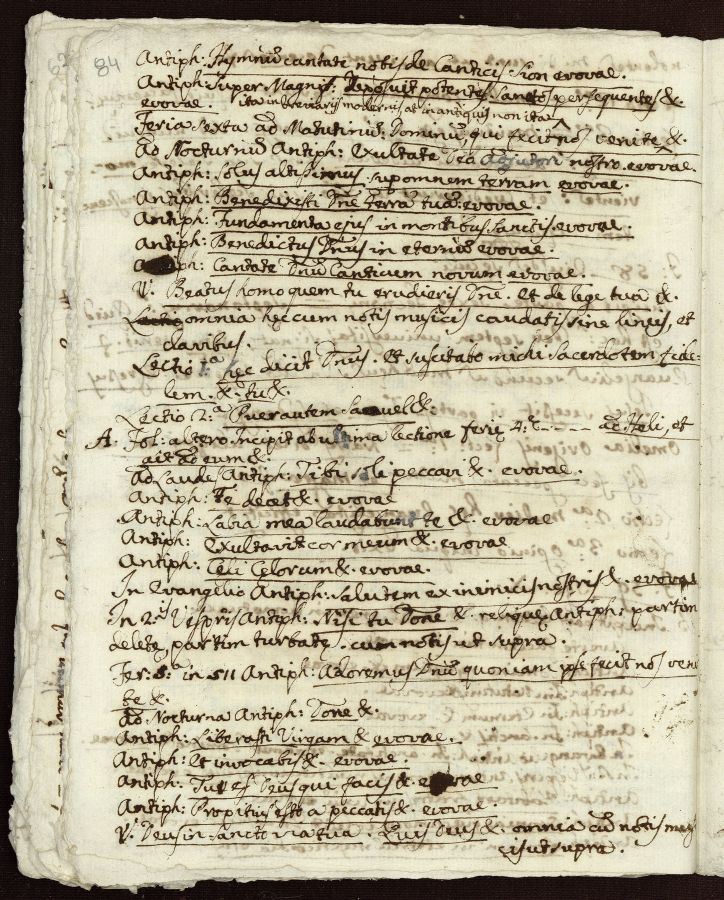 84
Antiph: Hymnũ cantate nobis de Canticis Sion evovae.
Antiph: Super Magnif: Deposuit potentes, Sanctos persequentes &.
evovae ita in breviariis modernis, at in antiquis non ita
Feria Sexta ad Matutinũ: Dominũ, qui fecit nos venite &.
Ad Nocturnũ Antiph: Exultate Deo Adjutori nostro. evovae.
Antiph: Solus altissimus sup omnem terram evovae.
Antiph: Benedixisti Dñe terrã tuã. evovae.
Antiph: Fundamenta ejus in montibus sanctis. evovae.
Antiph: Benedictus Dñus in eternũ evovae.
Antiph: Cantate Dñõ Canticum novum evovae.
V. Beatus homo quem tu erudieris Dñe. et de lege tua &.
omnia hęc cum notis musicis caudatis sine lineis, et
clavibus.
Lectio 1.ª hęc dicit Dñus. et suscitabo michi sacerdotem fide=
lem. &. tu &.
Lectio 2.ª Puer autem Samuel &.
A. Fol: altero Incipit ab ultima lectione ferię 4.ę ---- ad Heli, et
ait ad eum &.
Ad Laudes Antiph: Tibi soli peccavi &. evovae.
Antiph: Te decet &. evovae
Antiph: Labia mea laudabunt te &. evovae
Antiph: Exultavit cor meum &. evovae
Antiph: Celi Celorum &. evovae.
In Evangelio Antiph: Salutem ex inimicis nostris &. evovae
In 2.is Vespris Antiph: Nisi tu Dñe &. reliquę Antiph: partim
delete, partim turbate. cum notis ut supra.
Fer: 5.ª in 511 Antiph: Adoremus Dñũ quoniam ipse fecit nos veni
te &.
Ad Nocturna Antiph: Dñe &.
Antiph: Liberasti Virgam &. evovae.
Antiph: Et invocabis &. evovae.
Antiph: Tu es Deus qui facis &. evovae
Antiph: Propitius esto a peccatis &. evovae.
V. Deus in sancto via tua. Quis Deus &. omnia cũ notis musi
cis ut supra.